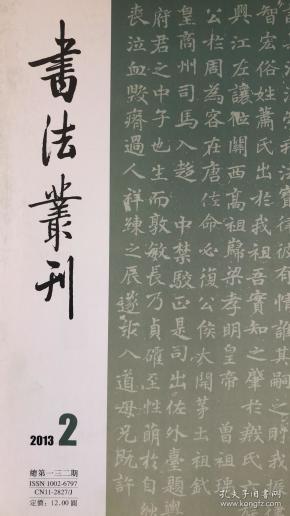 書法叢刊
2013 2
總第一三二期
ISSN 1002-6797
CN11-2827/J
定價：12.00圓
智宏俗姓蕭氏出於我祖吾實知之肇於殷氏
興江左讓位關西高祖歸梁孝明皇帝 曾祖瑀
公於周為客在唐佐命必復公侯大開茅土祖
皇商州司馬入趍 中禁駮正是司出佐外臺題輿
府君之中子也生而敦敏長乃貞確至性萌於自
喪泣血毀瘠過人祥練之辰遂報入道母兄既許
孔夫子旧书网